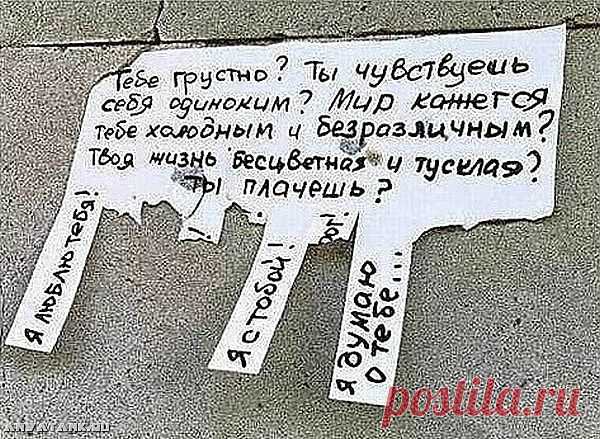 Тебе грустно? Ты чувствуешь
себя одиноким? Мир кажется
тебе холодным и безразличным?
Твоя жизнь бесцветная и тусклая?
Ты плачешь?
Я люблю тебя!
!
Я с тобой!
ой!
я думаю
о тебе...
postila.ru